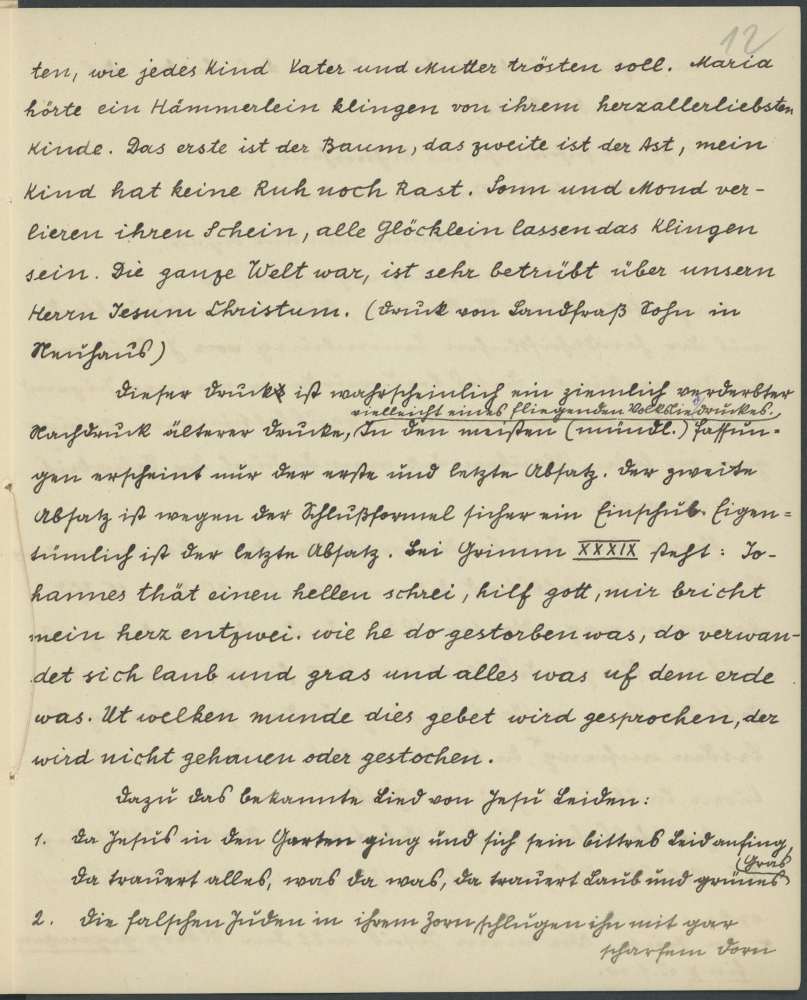 12
ten, wie jedes Kind Vater und Mutter trösten soll. Maria
hörte ein Hämmerlein klingen von ihrem herzallerliebsten
Kinde. Das erste ist der Baum, das zweite ist der Ast, mein
Kind hat keine Ruh noch Rast. Sonn und Mond ver-
lieren ihren Schein, alle Glöcklein lassen das Klingen
sein. Die ganze Welt war, ist sehr betrübt über unsern
Herrn Jesum Christum. (Druck von Landfraß Sohn in
Neuhaus)
Dieser Druck ist wahrscheinlich ein ziemlich verderbter
vielleicht eines fliegenden Volksliedruckes.
Nachdruck älterer Drucke, In den meisten (mündl.) Fassun-
gen erscheint nur der erste und letzte Absatz. Der zweite
Absatz ist wegen der Schlußformel sicher ein Einschub. Eigen=
tümlich ist der letzte Absatz. Bei Grimm XXXIX steht: Jo-
hannes thät einen hellen schrei, hilf gott, mir bricht
mein herz entzwei. wie he do gestorben was, do verwan-
det sich laub und gras und alles was uf dem erde
was. Ut welken munde dies gebet wird gesprochen, der
wird nicht gehauen oder gestochen.
Dazu das bekannte Lied von Jesu Leiden:
1. Da Jesus in den Garten ging und sich sein bittres Leid anfing,
da trauert alles, was da was, da trauert Laub und grünes
(Gras
2. Die falschen Juden in ihrem Zorn schlugen ihn mit gar
scharfem Dorn